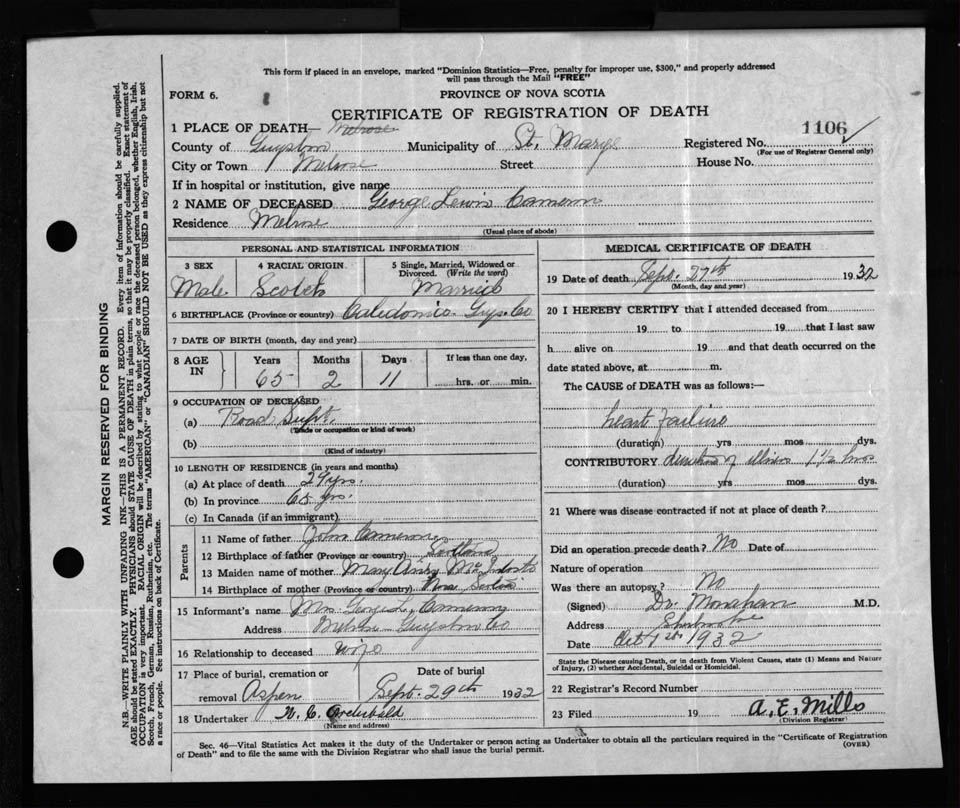 This form if placed in an envelope, marked "Dominion Statistics—Free, penalty for improper use, $300," and properly addressed
will pass through the Mail "FREE"
FORM 6.
PROVINCE OF NOVA SCOTIA
CERTIFICATE OF REGISTRATION OF DEATH
1 PLACE OF DEATH— Melrose
1106
County of Guysboro Municipality of St. Marys Registered No.
(For use of Registrar General only)
City or Town Melrose Street House No.
If in hospital or institution, give name
2 NAME OF DECEASED George Lewis Cameron
Residence Melrose
(Usual place of abode)
PERSONAL AND STATISTICAL INFORMATION
3 SEX 4 RACIAL ORIGIN 5 Single, Married, Widowed or
Divorced. (Write the word)
Male Scotch Married
6 BIRTHPLACE (Province or country) Caledonia Guys. Co
7 DATE OF BIRTH (month, day and year)
8 AGE IN Years Months Days If less than one day,
65 2 11 hrs. or min.
9 OCCUPATION OF DECEASED
(a) Road Supt.
(Trade or occupation or kind of work)
(b)
(Kind of industry)
10 LENGTH OF RESIDENCE (in years and months)
(a) At place of death 29 yrs.
(b) In province 65 yrs.
(c) In Canada (if an immigrant)
Parents
11 Name of father John Cameron
12 Birthplace of father (Province or country) Scotland
13 Maiden name of mother Mary Ann McIntosh
14 Birthplace of mother (Province or country) Nova Scotia
15 Informant's name Mrs George L. Cameron
Address Melrose Guysboro Co
16 Relationship to deceased wife
17 Place of burial, cremation or Date of burial
removal Aspen Sept. 29th 1932
18 Undertaker Archibald
(Name and address)
MEDICAL CERTIFICATE OF DEATH
19 Date of death Sept. 27th 1932
(Month, day and year)
20 I HEREBY CERTIFY that I attended deceased from
19 to 19 that I last saw
h alive on 19 and that death occurred on the
date stated above, at m.
The CAUSE of DEATH was as follows:—
heart failure
(duration) yrs mos dys.
CONTRIBUTORY duration of illness 1 1/2 hrs
(duration) yrs mos dys.
21 Where was disease contracted if not at place of death?
Did an operation precede death? No Date of
Nature of operation
Was there an autopsy? No
(Signed) Dr. Monahan M.D.
Address Sherbrooke
Date Oct 1932
State the Disease causing Death, or in death from Violent Causes, state (1) Means and Nature
of Injury, (2) whether Accidental, Suicidal or Homicidal.
22 Registrar's Record Number
23 Filed 19 A. E. Mills
(Division Registrar)
Sec. 46—Vital Statistics Act makes it the duty of the Undertaker or person acting as Undertaker to obtain all the particulars required in the "Certificate of Registration
of Death" and to file the same with the Division Registrar who shall issue the burial permit.
(OVER)
MARGIN RESERVED FOR BINDING
N.B.—WRITE PLAINLY WITH UNFADING INK—THIS IS A PERMANENT RECORD. Every item of information should be carefully supplied.
AGE should be stated EXACTLY. PHYSICIANS should STATE CAUSE OF DEATH in plain terms, so that it may be properly classified. Exact statement of
OCCUPATION is very important. RACIAL ORIGIN will be described by stating to what people or race the deceased person belonged, whether English, Irish,
Scotch, French, German, Russian, Ruthenian, etc. The terms "AMERICAN" or "CANADIAN" SHOULD NOT BE USED as they express citizenship but not
a race or people. See instructions on back of Certificate.